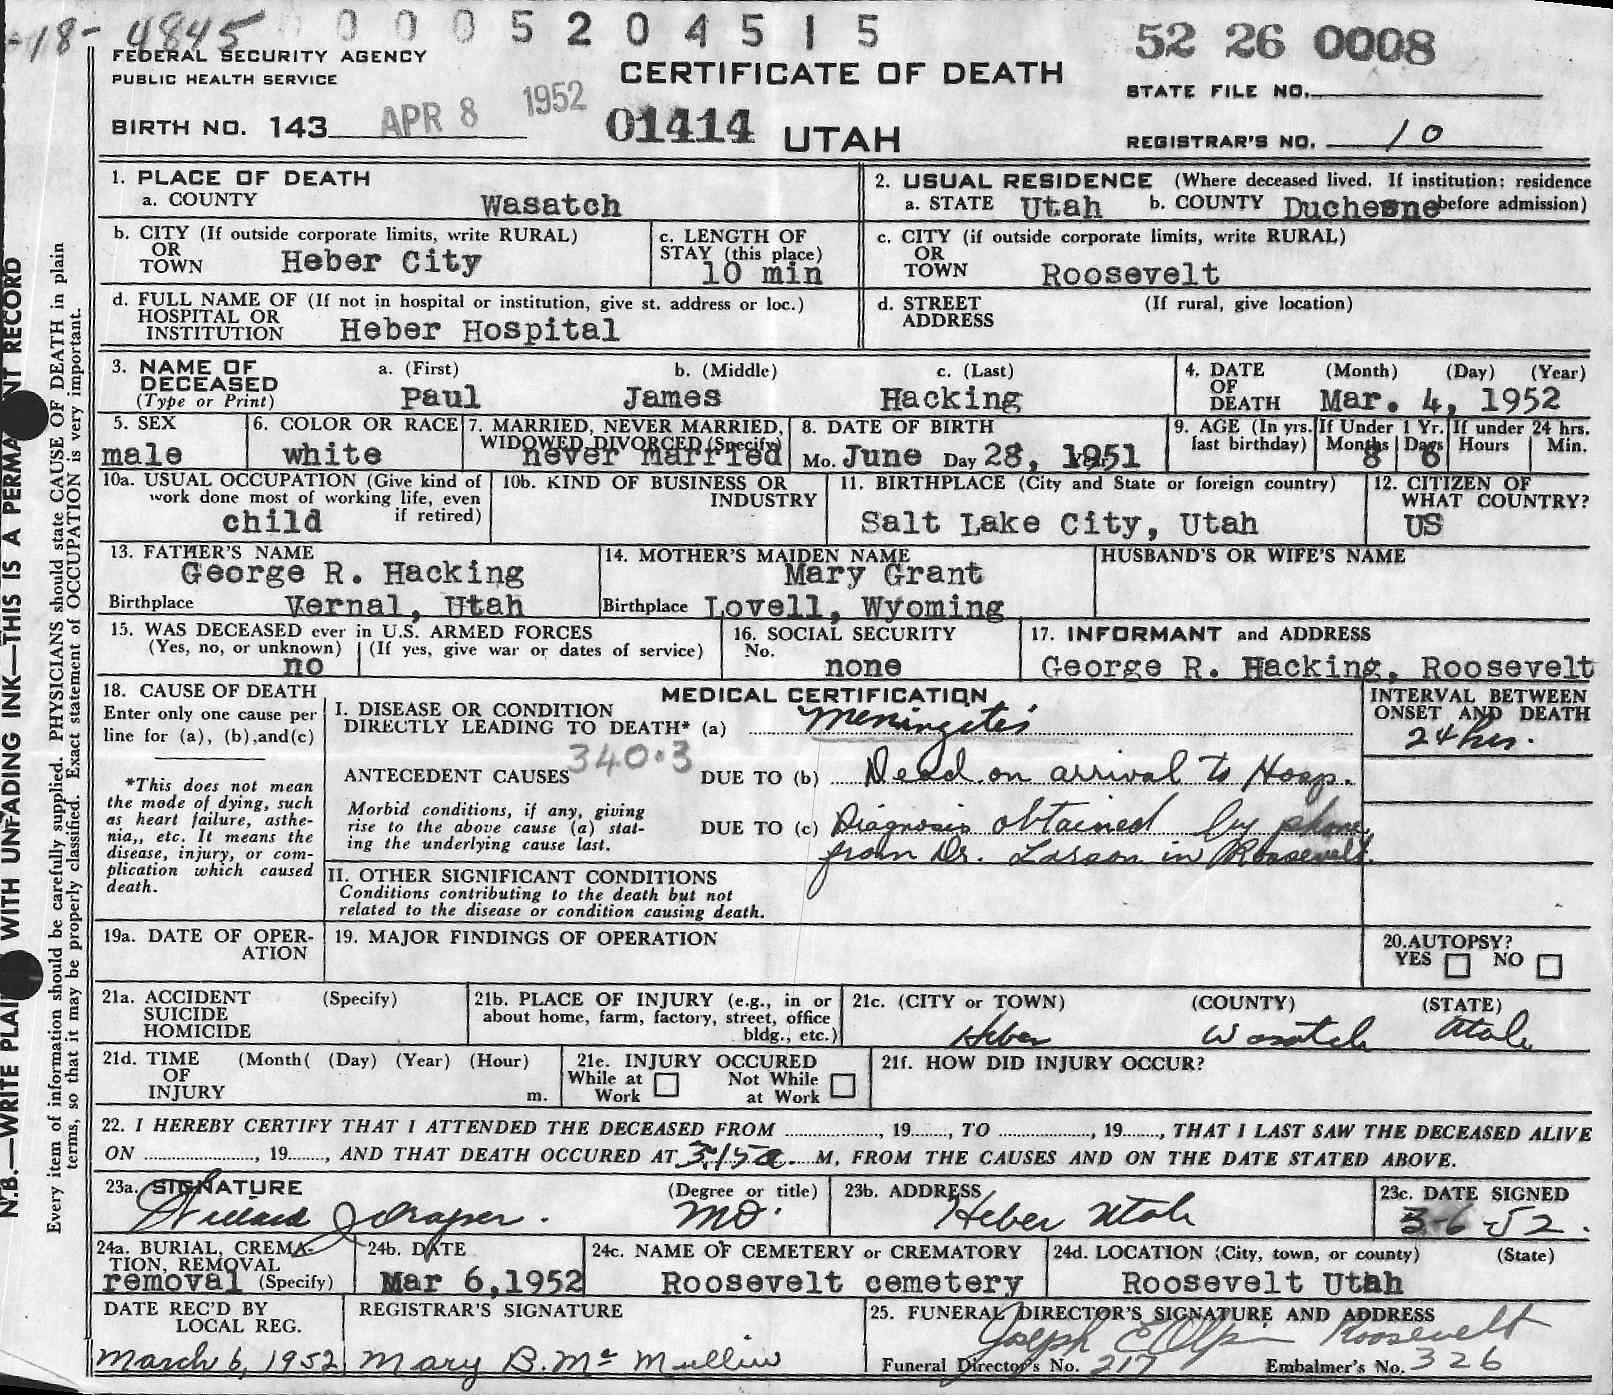 -18- 4845 0 0 0 5 2 0 4 5 1 5
52 26 0008
FEDERAL SECURITY AGENCY
PUBLIC HEALTH SERVICE
CERTIFICATE OF DEATH
STATE FILE NO.
BIRTH NO. 143 APR 8 1952 01414 UTAH
REGISTRAR'S NO. 10
1. PLACE OF DEATH
a. COUNTY Wasatch
2. USUAL RESIDENCE (Where deceased lived. If institution: residence
a. STATE Utah b. COUNTY Duchesne before admission)
b. CITY (If outside corporate limits, write RURAL)
OR
TOWN Heber City
c. LENGTH OF
STAY (this place)
10 min
c. CITY (if outside corporate limits, write RURAL)
OR
TOWN Roosevelt
d. FULL NAME OF (If not in hospital or institution, give st. address or loc.)
HOSPITAL OR
INSTITUTION Heber Hospital
d. STREET (If rural, give location)
ADDRESS
3. NAME OF a. (First) b. (Middle) c. (Last)
DECEASED
(Type or Print) Paul James Hacking
4. DATE (Month) (Day) (Year)
OF
DEATH Mar. 4, 1952
5. SEX
male
6. COLOR OR RACE
white
7. MARRIED, NEVER MARRIED,
WIDOWED, DIVORCED (Specify)
never married
8. DATE OF BIRTH
Mo. June Day 28, Year 1951
9. AGE (In yrs. If Under 1 Yr. If under 24 hrs.
last birthday) Months Days Hours Min.
8 6
10a. USUAL OCCUPATION (Give kind of
work done most of working life, even
child if retired)
10b. KIND OF BUSINESS OR
INDUSTRY
11. BIRTHPLACE (City and State or foreign country)
Salt Lake City, Utah
12. CITIZEN OF
WHAT COUNTRY?
US
13. FATHER'S NAME
George R. Hacking
Birthplace Vernal, Utah
14. MOTHER'S MAIDEN NAME
Mary Grant
Birthplace Lovell, Wyoming
HUSBAND'S OR WIFE'S NAME
15. WAS DECEASED ever in U.S. ARMED FORCES
(Yes, no, or unknown) (If yes, give war or dates of service)
no
16. SOCIAL SECURITY
No.
none
17. INFORMANT and ADDRESS
George R. Hacking, Roosevelt
18. CAUSE OF DEATH
Enter only one cause per
line for (a), (b),and(c)
*This does not mean
the mode of dying, such
as heart failure, asthe-
nia,, etc. It means the
disease, injury, or com-
plication which caused
death.
MEDICAL CERTIFICATION
I. DISEASE OR CONDITION
DIRECTLY LEADING TO DEATH* (a) Meningitis
340.3
ANTECEDENT CAUSES DUE TO (b) Dead on arrival to Hosp.
Morbid conditions, if any, giving
rise to the above cause (a) stat-
ing the underlying cause last.
DUE TO (c) Diagnosis obtained by phone
from Dr. Larson in Roosevelt.
INTERVAL BETWEEN
ONSET AND DEATH
24 hrs.
II. OTHER SIGNIFICANT CONDITIONS
Conditions contributing to the death but not
related to the disease or condition causing death.
19a. DATE OF OPER-
ATION
19. MAJOR FINDINGS OF OPERATION
20.AUTOPSY?
YES NO
21a. ACCIDENT (Specify)
SUICIDE
HOMICIDE
21b. PLACE OF INJURY (e.g., in or
about home, farm, factory, street, office
bldg., etc.)
21c. (CITY or TOWN) (COUNTY) (STATE)
Heber Wasatch Utah
21d. TIME (Month( (Day) (Year) (Hour)
OF
INJURY m.
21e. INJURY OCCURED
While at Work Not While at Work
21f. HOW DID INJURY OCCUR?
22. I HEREBY CERTIFY THAT I ATTENDED THE DECEASED FROM ............, 19......, TO ............, 19......, THAT I LAST SAW THE DECEASED ALIVE
ON ............, 19......, AND THAT DEATH OCCURED AT 3:15 a M, FROM THE CAUSES AND ON THE DATE STATED ABOVE.
23a. SIGNATURE (Degree or title)
Willard J Draper. MD.
23b. ADDRESS
Heber Utah
23c. DATE SIGNED
3-6-52.
24a. BURIAL, CREMA-
TION, REMOVAL
removal (Specify)
24b. DATE
Mar 6,1952
24c. NAME OF CEMETERY or CREMATORY
Roosevelt cemetery
24d. LOCATION (City, town, or county) (State)
Roosevelt Utah
DATE REC'D BY
LOCAL REG.
March 6, 1952
REGISTRAR'S SIGNATURE
Mary B. Mc Mullin
25. FUNERAL DIRECTOR'S SIGNATURE AND ADDRESS
Joseph E Olpin Roosevelt
Funeral Director's No. 217 Embalmer's No. 326
N.B.—WRITE PLAI WITH UNFADING INK—THIS IS A PERMA NT RECORD
Every item of information should be carefully supplied. PHYSICIANS should state CAUSE OF DEATH in plain
terms, so that it may be properly classified. Exact statement of OCCUPATION is very important.